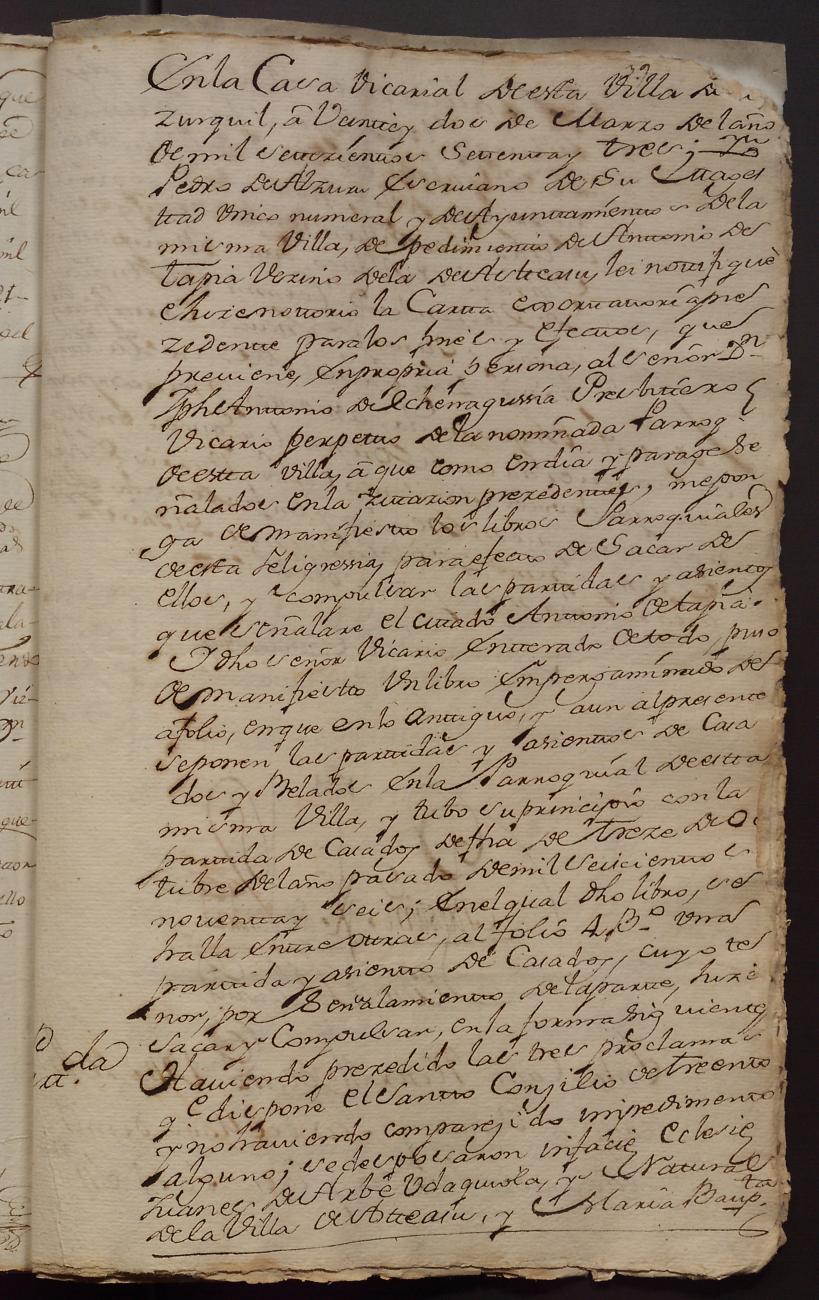 En la Casa Vicarial de esta Villa de
zurquil, â Veintey dos de Marzo del año
de mil settezientos Settentay tres; yo
Pedro de Alzuru Escrivano de Su Mages
ttad Unico numeral y de Ayunttamiento de la
misma Villa, de pedimiento de Anttonio de
tapia Vezino dela de Astteasu, lei nottifiquè
e hize nottorio la Cartta exorttattoria pre
zedentte para los fines y efecttos, que
previene, en propria persona, al señor Dn
Jph Anttonio de Echenagussia Presbittero
Vicario perpetuo de la nominada Parroq
de estta Villa, â que como en dia y parage se
ñalados en la zittazion prezedente, me pon
ga de manifiesto los libros Parroquiales
de esta feligressia, para efecto de Sacar de
ellos, y compulsar las parttidas y asientos
que señalare el cittado Anttonio de tapia.
Y dho señor Vicario Entterado de todo, puso
de manifiesto Un libro Empergaminado de
afolio, en que en lo antiguo, y aun al presente
se ponen las partidas y asientos de Casa
dos y Belados En la Parroquial de estta
misma Villa, y tubo su principio con la
parttida de Casados de fha de treze de Oc
tubre del año pasado de mil Seiscientos
noventtay seis; En el qual dho libro, se
halla Entre ottras, al folio 4 Bto. una
parttida y asiento de Casados, cuyo te
nor, por Señalamiento de la partte, hize
sacar y Compulsar, en la forma siguiente
da
tt.
Haviendo prezedido las tres proclamas
q e dispone el Santto Conzilio de treento
y no haviendo comparezido impedimento
alguno; se desposaron infacie Eclesie
Juanes de Arbe Udaquiola, y Natural
de la Villa de Atteasu, y Maria Baupta